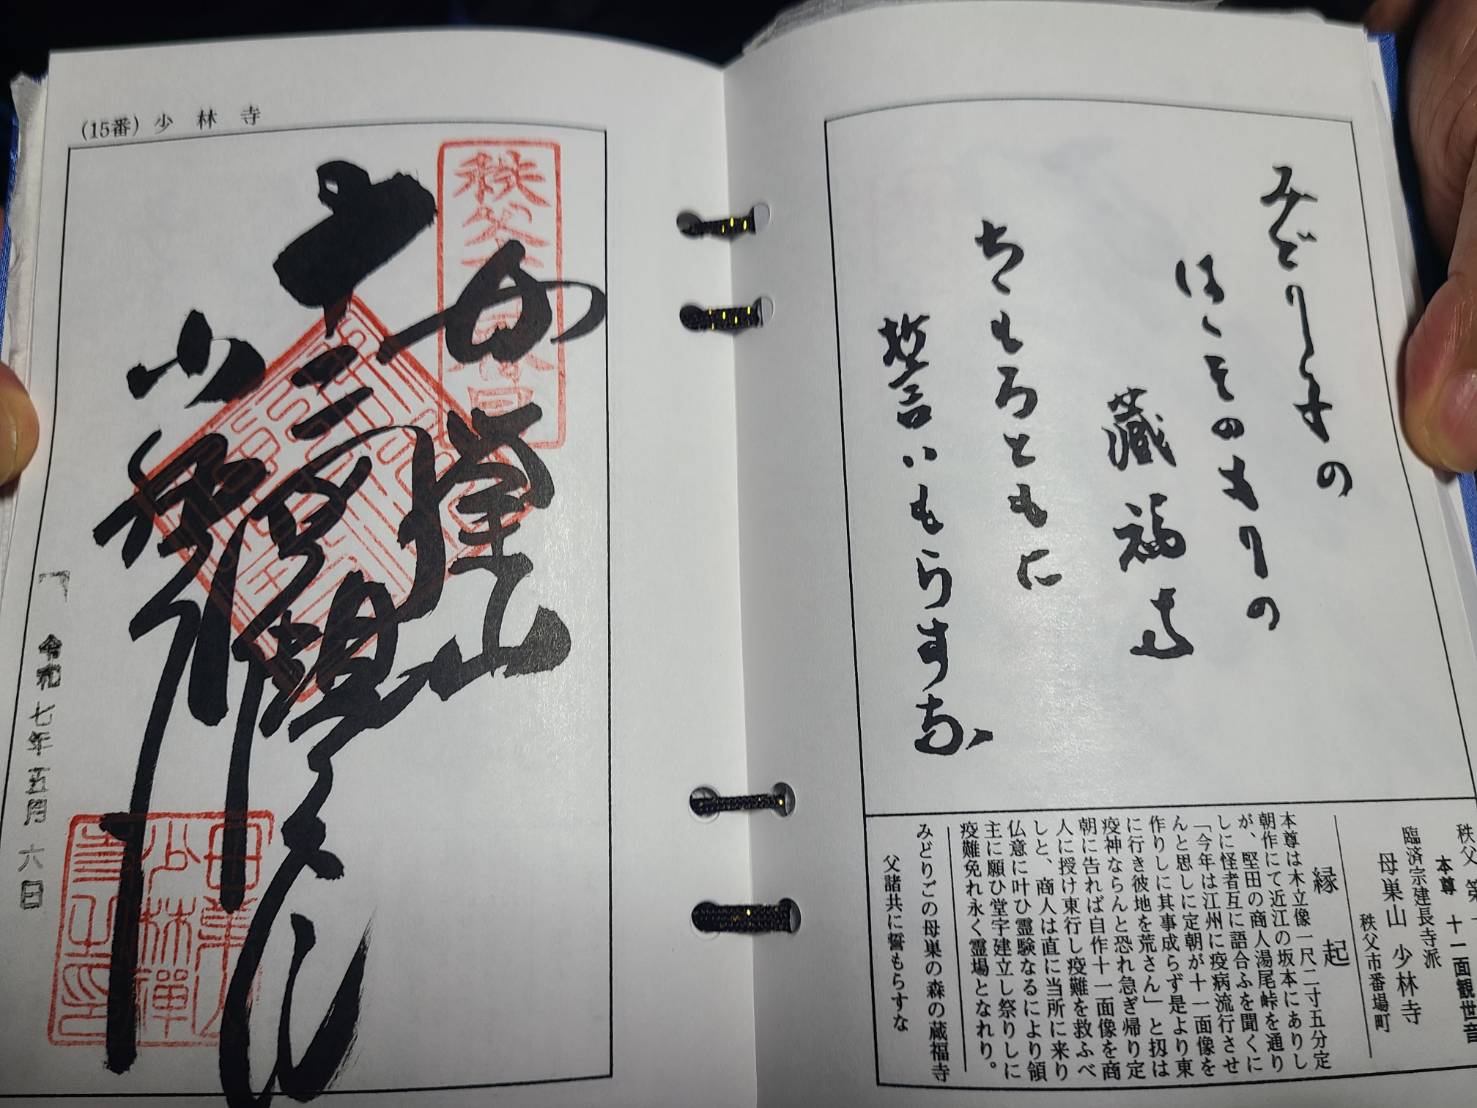 (15番) 少林寺
令和七年五月六日
みどり子の
はゝそのもりの
蔵福寺
ちゝもろともに
誓いもらすな
本尊 十一面観世音
臨済宗建長寺派
母巣山 少林寺
秩父市番場町
縁起
本尊は木立像一尺二寸五分定
朝作にて近江の坂本にありし
が、堅田の商人湯尾峠を通り
しに怪者互に語合ふを聞くに
「今年は江州に疫病流行させ
んと思しに定朝が十一面像を
作りしに其事成らず是より東
に行き彼地を荒さん」と扨は
疫神ならんと恐れ急ぎ帰り定
朝に告れば自作十一面像を商
人に授け東行し疫難を救ふべ
しと、商人は直に当所に来り
仏意に叶ひ霊験なるにより領
主に願ひ堂宇建立し祭りしに
疫難免れ永く霊場となれり。
みどりごの母巣の森の蔵福寺
父諸共に誓もらすな